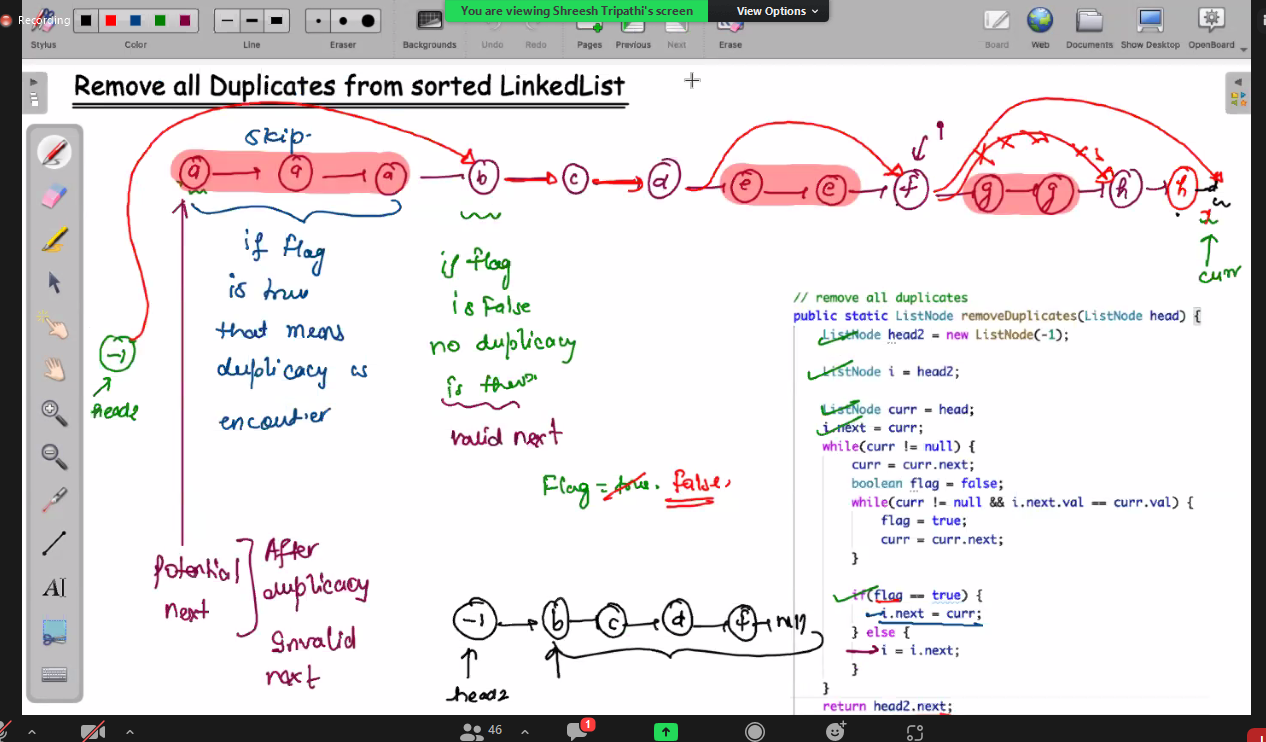 Recording
You are viewing Shreesh Tripathi's screen
View Options
Stylus
Color
Line
Eraser
Backgrounds
Undo
Redo
Pages
Previous
Next
Erase
Board
Web
Documents
Show Desktop
OpenBoard
Remove all Duplicates from sorted LinkedList
skip.
a a a b c d e e f g g h h
i
x
curr
if flag
is true
that means
duplicacy is
encoutier
if flag
is False
no duplicacy
is there
valid next
-1
head2
Flag = true. false.
potential
next
After
duplicacy
Invalid
next
-1 b c d f null
head2
// remove all duplicates
public static ListNode removeDuplicates(ListNode head) {
ListNode head2 = new ListNode(-1);
ListNode i = head2;
ListNode curr = head;
i.next = curr;
while(curr != null) {
curr = curr.next;
boolean flag = false;
while(curr != null && i.next.val == curr.val) {
flag = true;
curr = curr.next;
}
if(flag == true) {
i.next = curr;
} else {
i = i.next;
}
}
return head2.next;
AI
46
1